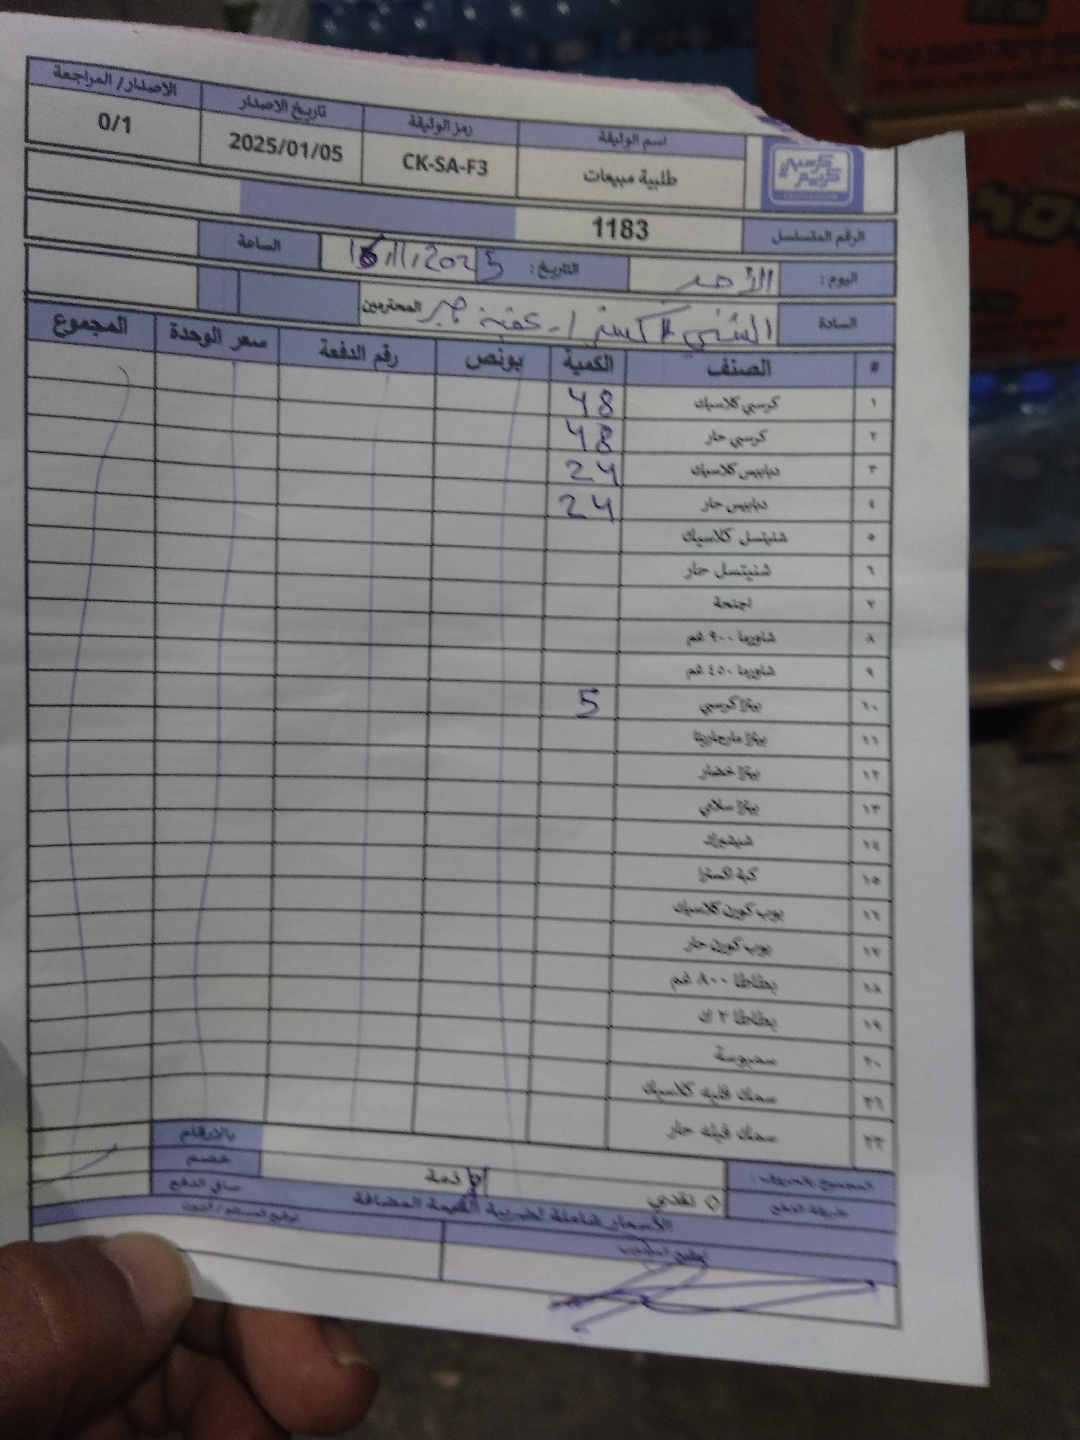 اسم الوثيقة رمز الوثيقة تاريخ الاصدار الاصدار/ المراجعة
كرسبي كريم
طلبية مبيعات CK-SA-F3 2025/01/05 0/1
الرقم المتسلسل 1183
اليوم: الأحد التاريخ: 16/11/2025 الساعة
السادة المحترمين
# الصنف الكمية بونص رقم الدفعة سعر الوحدة المجموع
١ كرسبي كلاسيك 48
٢ كرسبي حار 48
٣ دبابيس كلاسيك 24
٤ دبابيس حار 24
٥ شنيتسل كلاسيك
٦ شنيتسل حار
٧ اجنحة
٨ شاورما ٩٠٠ غم
٩ شاورما ٤٥٠ غم
١٠ بيتزا كرسبي 5
١١ بيتزا مارجاريتا
١٢ بيتزا خضار
١٣ بيتزا سلامي
١٤ شيشبرك
١٥ كبة اكسترا
١٦ بوب كورن كلاسيك
١٧ بوب كورن حار
١٨ بطاطا ٨٠٠ غم
١٩ بطاطا ٢ ك
٢٠ سمبوسة
٢١ سمك فليه كلاسيك
٢٢ سمك فيله حار
المجموع بالحروف: بالارقام
خصم
طريقة الدفع نقدي ذمة صافي الدفع
الأسعار شاملة لضريبة القيمة المضافة
توقيع المندوب توقيع المستلم / الزبون